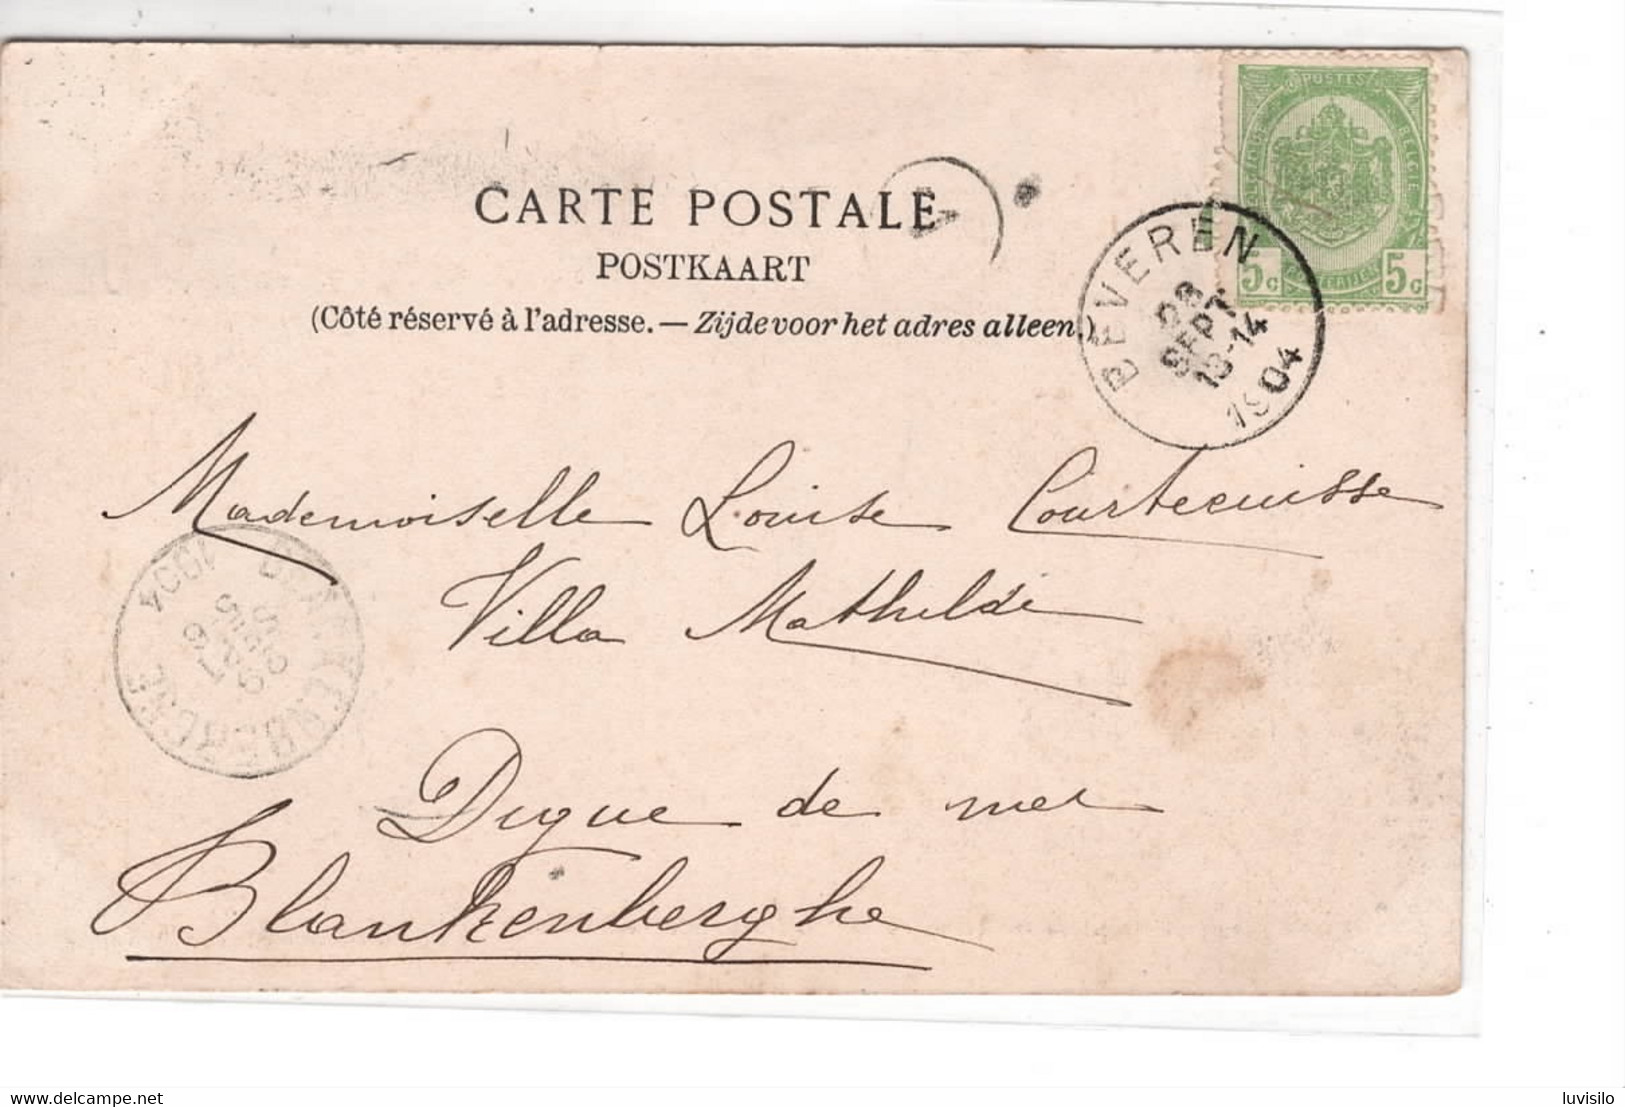 POSTES
BELGIQUE BELGIE
5c POSTERIJEN 5c
CARTE POSTALE
POSTKAART
(Côté réservé à l'adresse. — Zijde voor het adres alleen.)
BEVEREN
SEPT
13-14
1904
Mademoiselle Louise Courtecuisse
Villa Mathilde
BLANKENBERGHE
1904
Digue de mer
Blankenberghe
www.delcampe.net
luvisilo